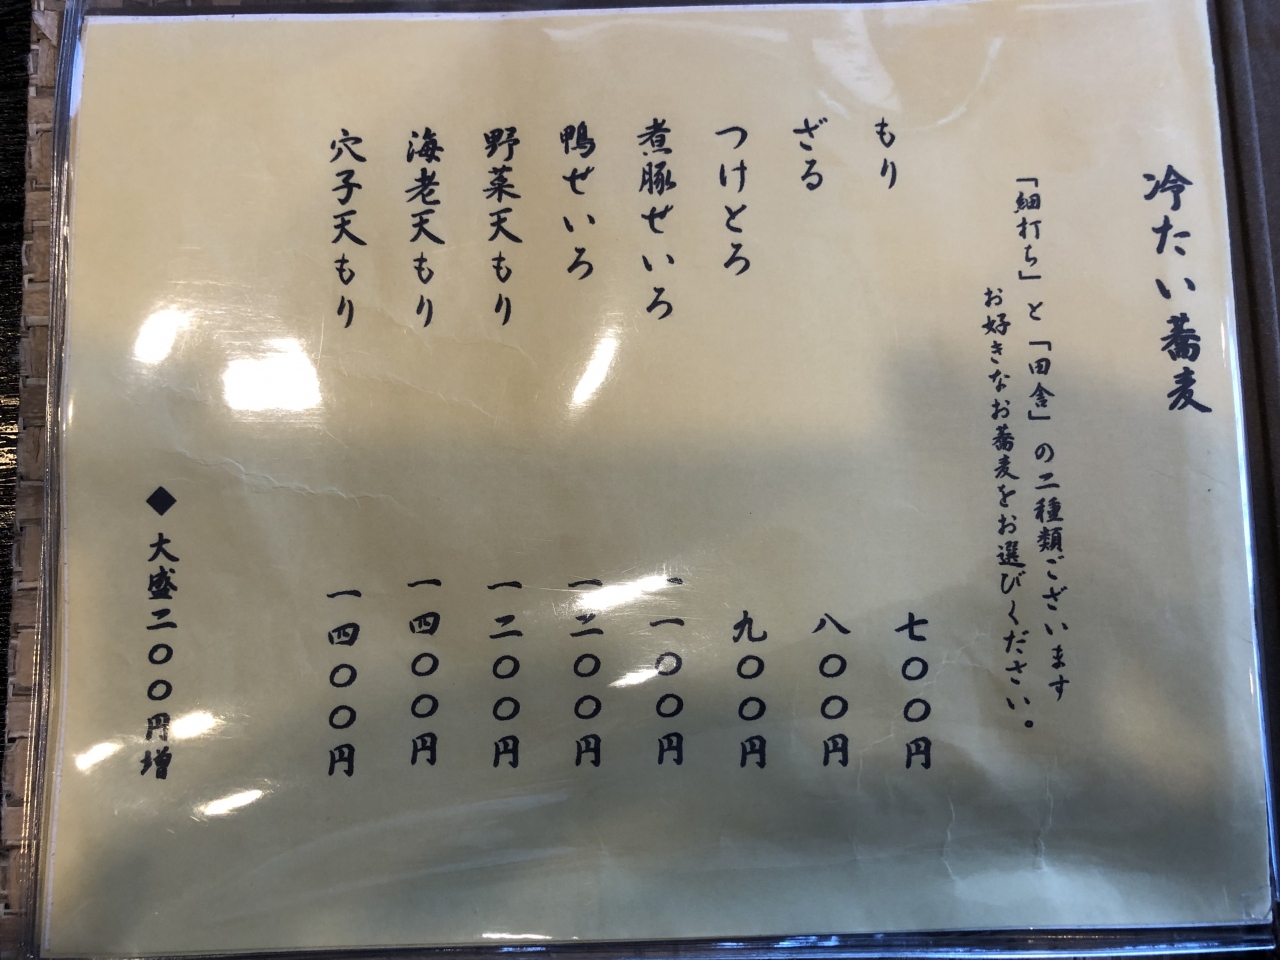 冷たい蕎麦
「細打ち」と「田舎」の二種類ございます
お好きなお蕎麦をお選びください。
もり 七〇〇円
ざる 八〇〇円
つけとろ 九〇〇円
煮豚せいろ 一一〇〇円
鴨せいろ 一二〇〇円
野菜天もり 一二〇〇円
海老天もり 一四〇〇円
穴子天もり 一四〇〇円
◆大盛二〇〇円増